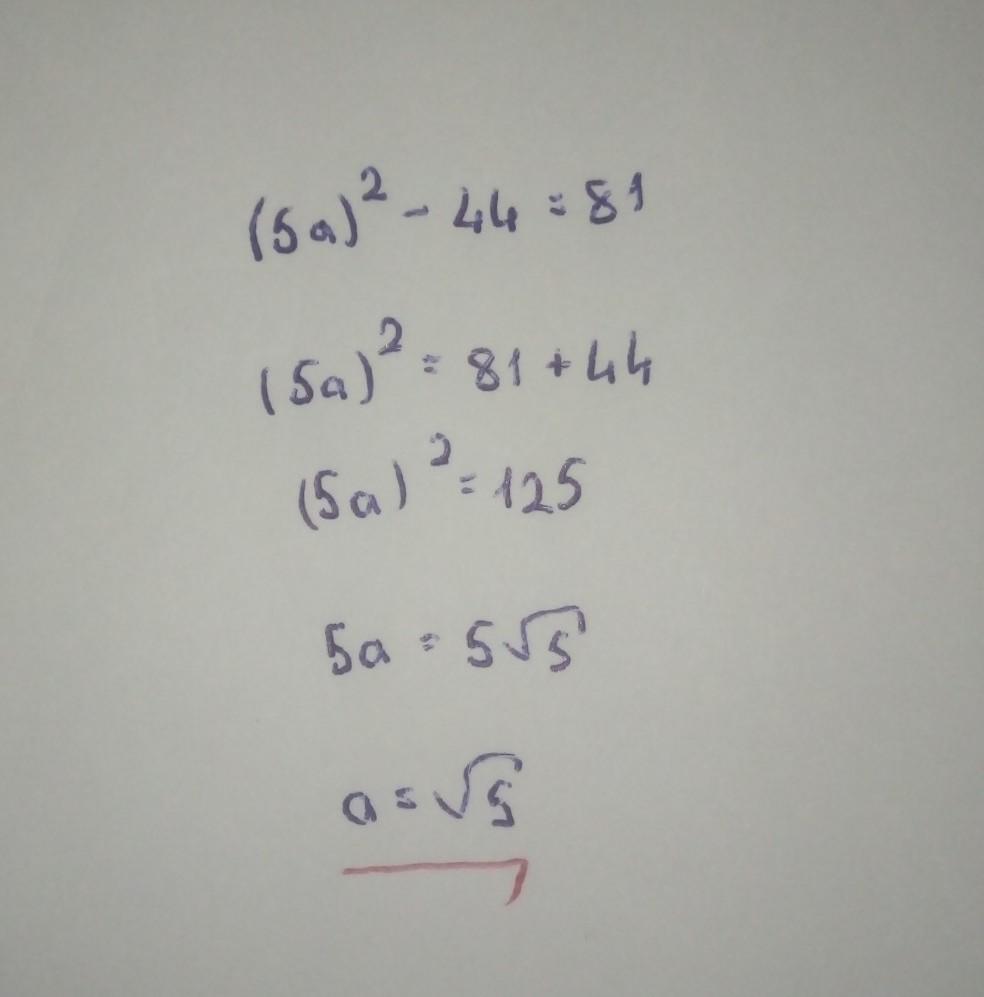 (5a)² - 44 = 81
(5a)² = 81 + 44
(5a)² = 125
5a = 5√5
a = √5